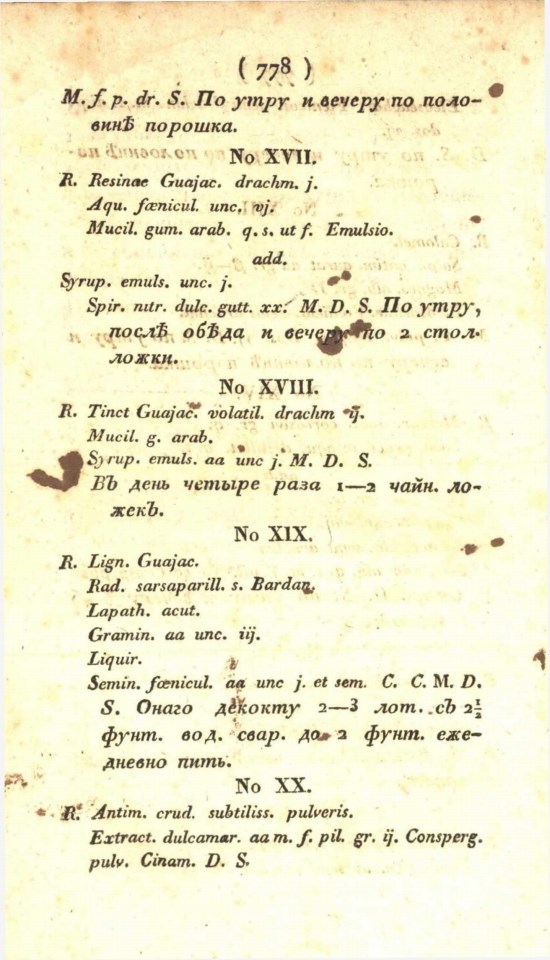 ( 778 )
M. f. p. dr. S. По утру и вечеру по поло-
винѣ порошка.
No XVII.
R. Resinae Guajac. drachm. j.
Aqu. fœnicul. unc. vj.
Mucil. gum. arab. q. s. ut f. Emulsio.
add.
Syrup. emuls. unc. j.
Spir. nitr. dulc. gutt. xx. M. D. S. По утру,
послѣ обѣда и вечеру по 2 стол.
ложки.
No XVIII.
R. Tinct Guajac. volatil. drachm ij.
Mucil. g. arab.
Syrup. emuls. aa unc j. M. D. S.
Въ день четыре раза 1—2 чайн. ло-
жекъ.
No XIX.
R. Lign. Guajac.
Rad. sarsaparill. s. Bardan.
Lapath. acut.
Gramin. aa unc. iij.
Liquir.
Semin. fœnicul. aa unc j. et sem. C. C. M. D.
S. Онаго декокту 2—3 лот. съ 2½
фунт. вод. свар. до 2 фунт. еже-
дневно пить.
No XX.
R. Antim. crud. subtiliss. pulveris.
Extract. dulcamar. aa m. f. pil. gr. ij. Consperg.
pulv. Cinam. D. S.